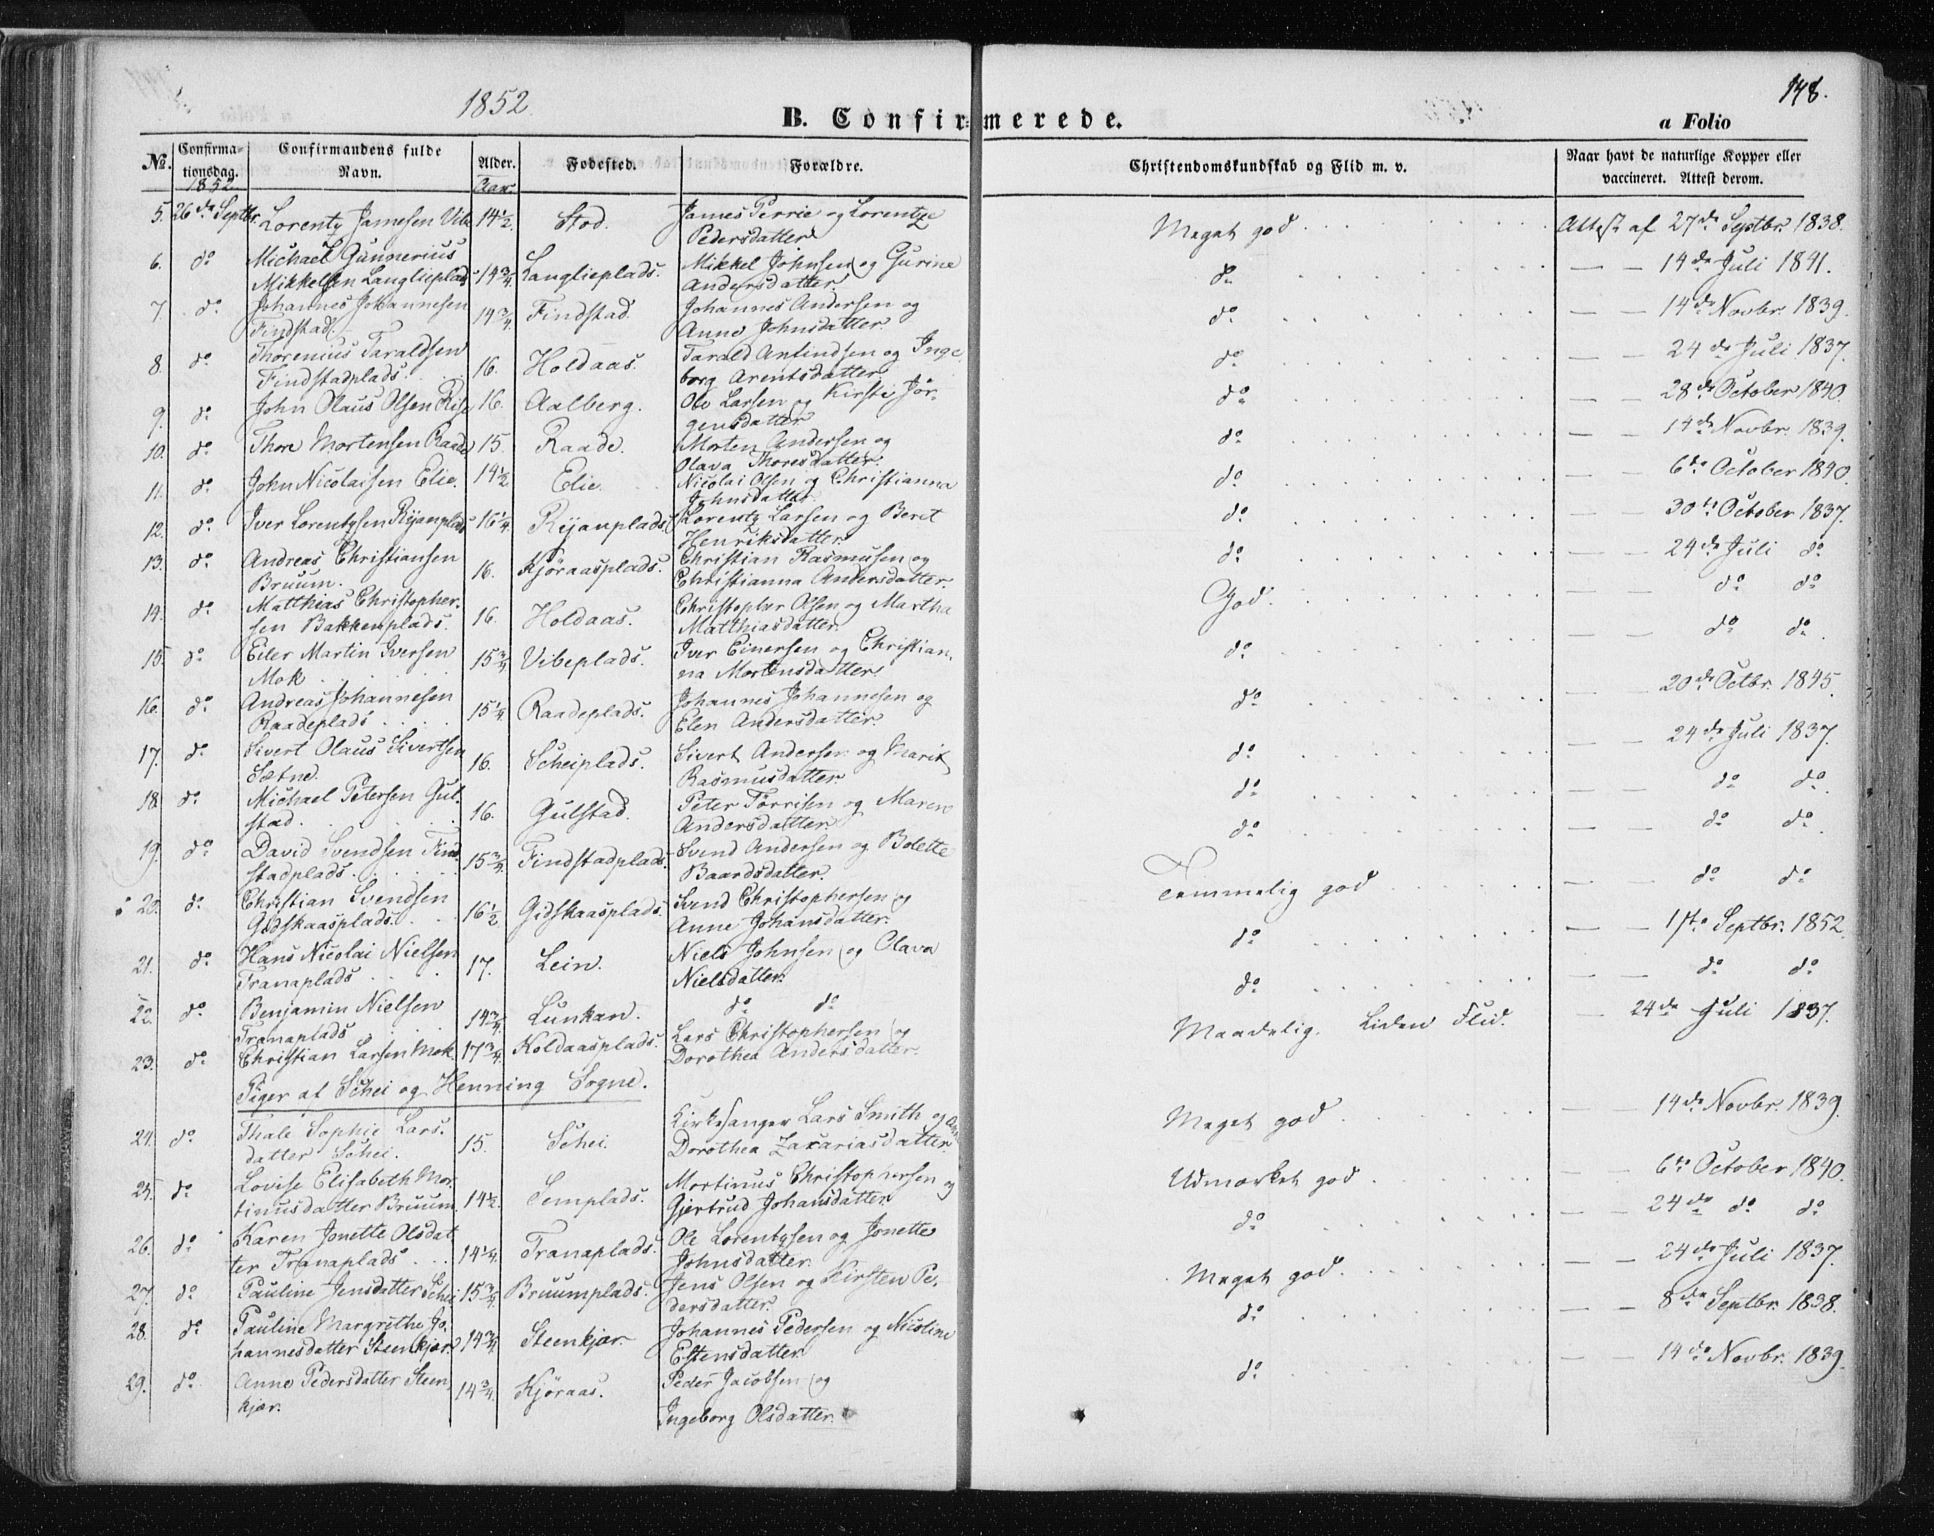 148.
1852.
B. Confirmerede.
a Folio
No. Confirmationsdag. Confirmandens fulde Navn. Alder. Fødested. Forældre. Christendomskundskab og Flid m. v. Naar havt de naturlige Kopper eller vaccineret. Attest derom.
1852. Aar.
5. 26de Septbr. Lorentz Jamesen Vibe 14½. Stod. James Perrie og Lorentze Meget god. Attest af 27de Septbr. 1838.
Pedersdatter.
6. do Michael Gunnerius 14¾. Langlieplads. Mikkel Johnsen og Gurine do — — 14de Juli 1841.
Mikkelsen Langlieplads Andersdatter.
7. do Johannes Johannesen 14¾. Findstad. Johannes Andersen og do — — 14de Novbr. 1839.
Findstad. Anne Johnsdatter.
8. do Thorenius Taraldsen 16. Holdaas. Tarald Arlindsen og Inge do — — 24de Juli 1837.
Findstadplads. borg Arentsdatter.
9. do John Olaus Olsen Rise 16. Aalberg. Ole Larsen og Kirsti Jør- do — — 28de October 1840.
gensdatter
10. do Thore Mortensen Raade 15. Raade. Morten Andersen og do — — 14de Novbr. 1839.
Olava Thoresdatter.
11. do John Nicolaisen Elie. 14½ Elie. Nicolai Olsen og Christianna do — — 6te October 1840.
Johnsdatter.
12. do Iver Lorentzsen Ryanplads 16¼. Ryanplads. Lorentz Larsen og Beret do — — 30te October 1837.
Henriksdatter.
13. do Andreas Christiansen 16. Kjøraasplads. Christian Rasmusen og do — — 24de Juli do
Bruum. Christianna Andersdatter.
14. do Matthias Christopher- 16. Holdaas. Christopher Olsen og Martha God. — — do do
sen Bakkenplads. Matthiasdatter.
15. do Eiler Martin Iversen 15¾. Vibeplads. Iver Einersen og Christian- do — — do do.
Mok na Mortensdatter.
16. do Andreas Johannesen 15¼. Raadeplads. Johannes Johannesen og do — — 20de Octbr. 1845.
Raadeplads Elen Andersdatter.
17. do Sivert Olaus Sivertsen 16. Scheiplads. Sivert Andersen og Marit do — — 24de Juli 1837.
Sætne. Rasmusdatter.
18. do Michael Petersen Gul- 16. Gulstad. Peter Tørrisen og Maren do — — do do.
stad. Andersdatter.
19. do David Svendsen Find- 15¾. Findstadplads. Svend Andersen og Bolette do — — do do.
stadplads. Baardsdatter.
20. do Christian Svendsen 16½ Gidskaasplads. Svend Christophersen og Temmelig god — — do do.
Gidskaasplads. Anne Johansdatter.
21. do Hans Nicolai Nielsen 17. Lein. Niels Johnsen og Olava do — — 1ste Septbr. 1852.
Tranaplads Nielsdatter.
22. do Benjamin Nielsen 14¾. Lunkan. do do do — — do do.
Tranaplads
23. do Christian Larsen Mok. 17¾. Holdaasplads. Lars Christophersen og Maadelig. Liden Flid. — 24de Juli 1837.
Dorothea Andersdatter.
Piger af Schei og Henning Sogne.
24. do Thale Sophie Lars- 15. Schei. Kirkesanger Lars Smith og Meget god. — — 14de Novbr. 1839.
datter Schei. Dorothea Zakariasdatter
25. do Lovise Elisabeth Mor- 14½. Semplads. Mortinus Christophersen og Udmærket god — — 6te October 1840.
tinusdatter Bruum. Gjertrud Johansdatter
26. do Karen Jonette Olsdat- 14¼. Tranaplads. Ole Lorentzsen og Jonette do — — 24de do do
ter Tranaplads. Johnsdatter.
27. do Pauline Jensdatter Schei 15¾. Bruumplads. Jens Olsen og Kirsten Pe- Meget god. — — 24de Juli 1837.
dersdatter.
28. do Pauline Margrethe Jo- 14¾. Steenkjær. Johannes Pedersen og Nicoline do — — 8de Septbr. 1838.
hannesdatter Steenkjær. Estensdatter.
29. do Anne Pedersdatter Steen- 14¾. Kjøraas. Peder Jacobsen og do — — 14de Novbr. 1839.
kjær. Ingeborg Olsdatter.